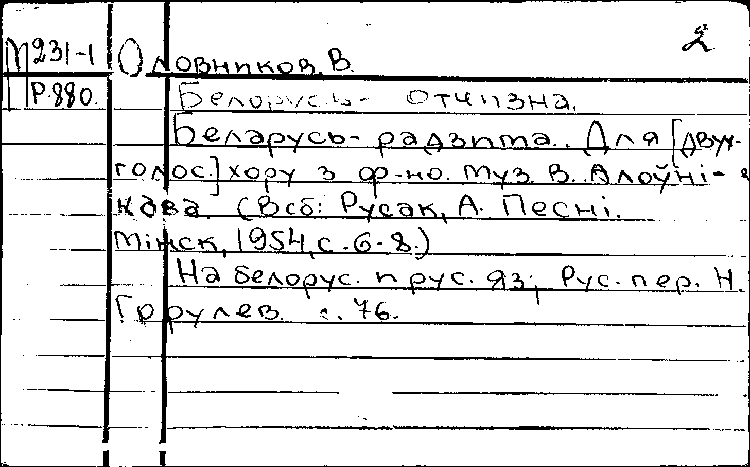 2
М231-1 Оловников, В.
Р.880. Белорусь- отчизна.
Беларусь- радзіма. Для [двух-
голос.] хору з ф-но. Муз. В. Алоўні-
кава. (В сб: Русак, А. Песні.
Мінск, 1954, с. 6-8.)
На белорус. и рус. яз; Рус. пер. Н.
Горулев. с. 76.